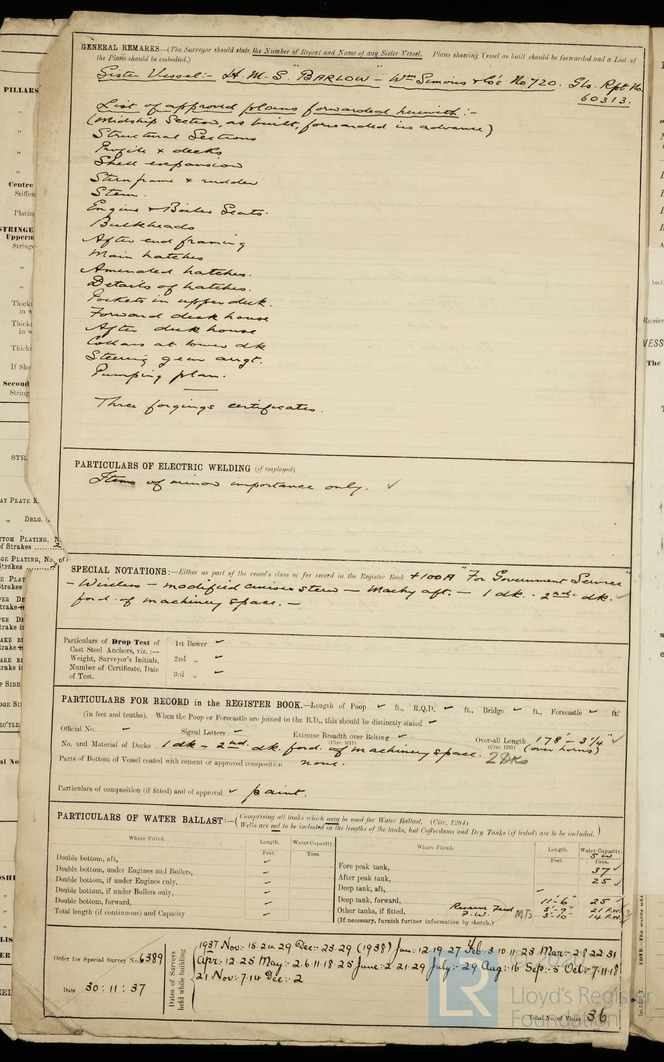 GENERAL REMARKS—(The Surveyor should state the Number of Report and Name of any Sister Vessel. Plans showing Vessel as built should be forwarded and a List of
the Plans should be embodied.)
Sister Vessel:- H.M.S "BARLOW" - Wm Simons & Co's No 720. Gls. Rpt No
60313.
List of approved plans forwarded herewith:-
(Midship Section, as built, forwarded in advance)
Structural Sections
Profile & decks
Shell expansion
Sternframe & rudder
Stem.
Engine & Boiler Seats.
Bulkheads
After end framing
Main hatches
Amended hatches.
Details of hatches.
Pockets in upper deck.
Forward deck house
After deck house
Collars at lower dk
Steering gear arrgt.
Pumping plan.
Three forgings certificates.
PARTICULARS OF ELECTRIC WELDING (if employed)
Items of minor importance only. ✓
SPECIAL NOTATIONS:—Either as part of the vessel's class or for record in the Register Book +100A "For Government Service"
- Wireless - modified cruiser stern - Machy aft. - 1 dk. - 2nd dk. ✓
ford. of machinery space. -
Particulars of Drop Test of
Cast Steel Anchors, viz.:—
Weight, Surveyor's Initials,
Number of Certificate, Date
of Test.
1st Bower ✓
2nd „ ✓
3rd „ ✓
PARTICULARS FOR RECORD in the REGISTER BOOK.—Length of Poop ✓ ft., R.Q.D. ✓ ft., Bridge ✓ ft., Forecastle ✓ ft.
(in feet and tenths). When the Poop or Forecastle are joined to the B.D., this should be distinctly stated ✓
Official No. ✓ Signal Letters ✓ Extreme Breadth over Belting ✓ Over-all Length 178'-3¼" ✓
(Circ. 1611) (Circ. 1201) (over horns)
No. and Material of Decks 1 dk - 2nd. dk. ford. of machinery space. 2 Dks
Parts of Bottom of Vessel coated with cement or approved composition none.
Particulars of composition (if fitted) and of approval ✓ paint.
PARTICULARS OF WATER BALLAST:—(Comprising all tanks which may be used for Water Ballast. (Circ. 1284)
Wells are not to be included in the lengths of the tanks, but Cofferdams and Dry Tanks (if tested) are to be included.)
Where Fitted. Length. Water Capacity.
Feet. Tons.
Double bottom, aft, ✓
Double bottom, under Engines and Boilers, ✓
Double bottom, if under Engines only, ✓
Double bottom, if under Boilers only, ✓
Double bottom, forward, ✓
Total length (if continuous) and Capacity ✓
Where Fitted. Length. Water Capacity.
Feet. S W Tons.
Fore peak tank, 37 ✓
After peak tank, 25 ✓
Deep tank, aft, ✓
Deep tank, forward, 11'-6" 25 ✓
Other tanks, if fitted, Reserve Feed 21 F.W.
F.W. MTS 3'-10" 14 F.W.
(If necessary, furnish further information by sketch.)
Order for Special Survey No. 6389
Date 30:11:37
Dates of Surveys
held while building
1937 Nov: 15 24 29 Dec: 23 29 (1938) Jan: 12 19 27 Feb: 3 10 11 23 Mar: 2 8 22 31
Apr: 12 25 May: 2. 6. 11. 18 25 June: 2. 21. 29 July: 29 Aug: 16 Sep: 5 Oct: 7. 11. 18
21 Nov: 7. 14 Dec: 2
Total No. of Visits 36
LR
Lloyd's Register
Foundation